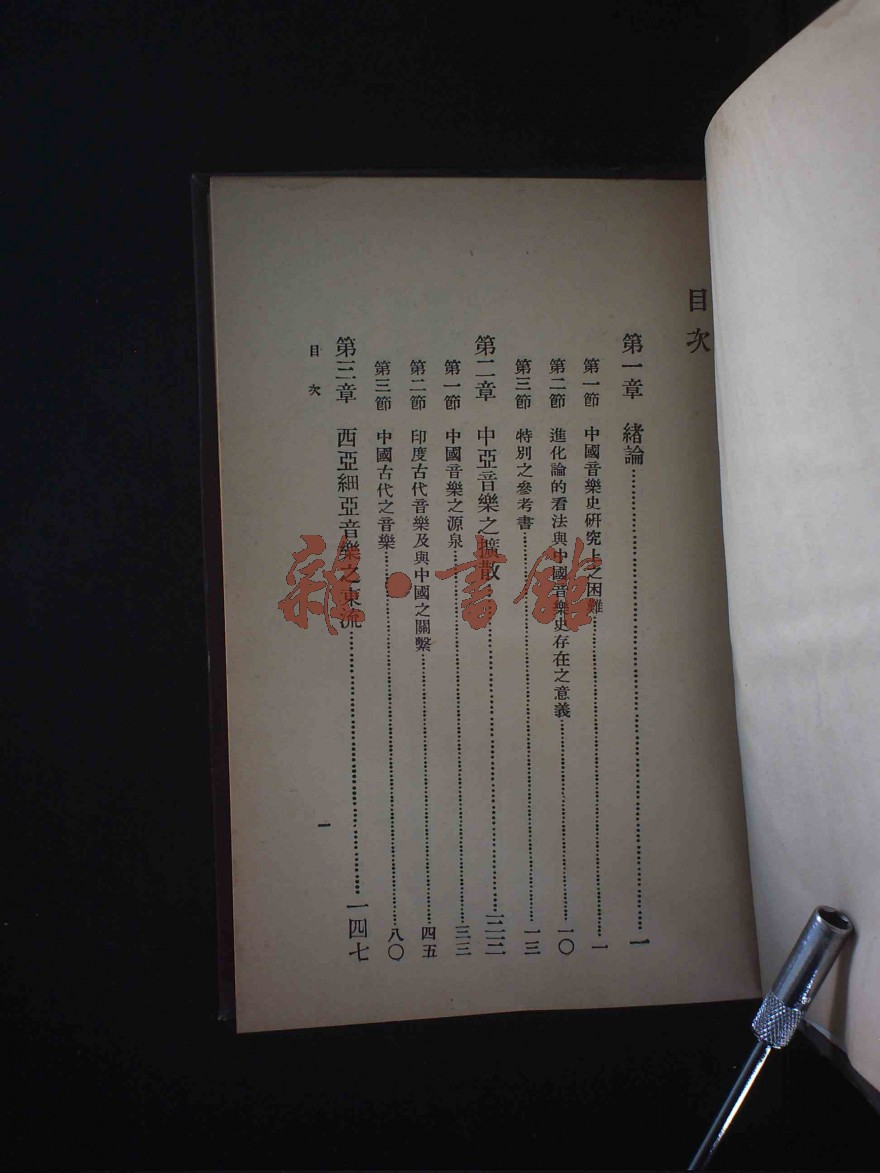 目次
第一章 緒論……一
第一節 中國音樂史研究上之困難……一
第二節 進化論的看法與中國音樂史存在之意義……一〇
第三節 特別之參考書……一三
第二章 中亞音樂之擴散……三三
第一節 中國音樂之源泉……三三
第二節 印度古代音樂及與中國之關繫……四五
第三節 中國古代之音樂……八〇
第三章 西亞細亞音樂之東流……一四七
目次
一
雜·書館